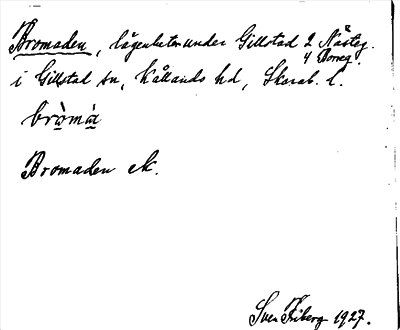 Bromaden, lägenheter under Gillstad 2 Nästeg.
4 Borreg.
i Gillstad sn, Kållands hd, Skarab. l.
bròmá
Bromaden ek.
Sven Friberg 1927.